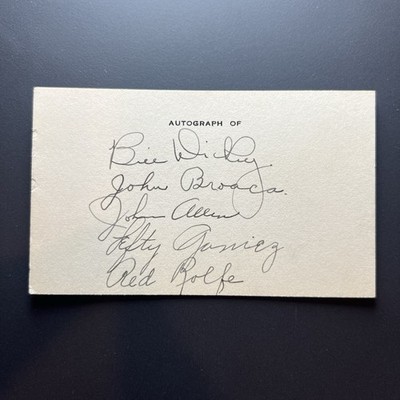 AUTOGRAPH OF
Bill Dickey
John Broaca.
John Allen
Lefty Gomez
Red Rolfe